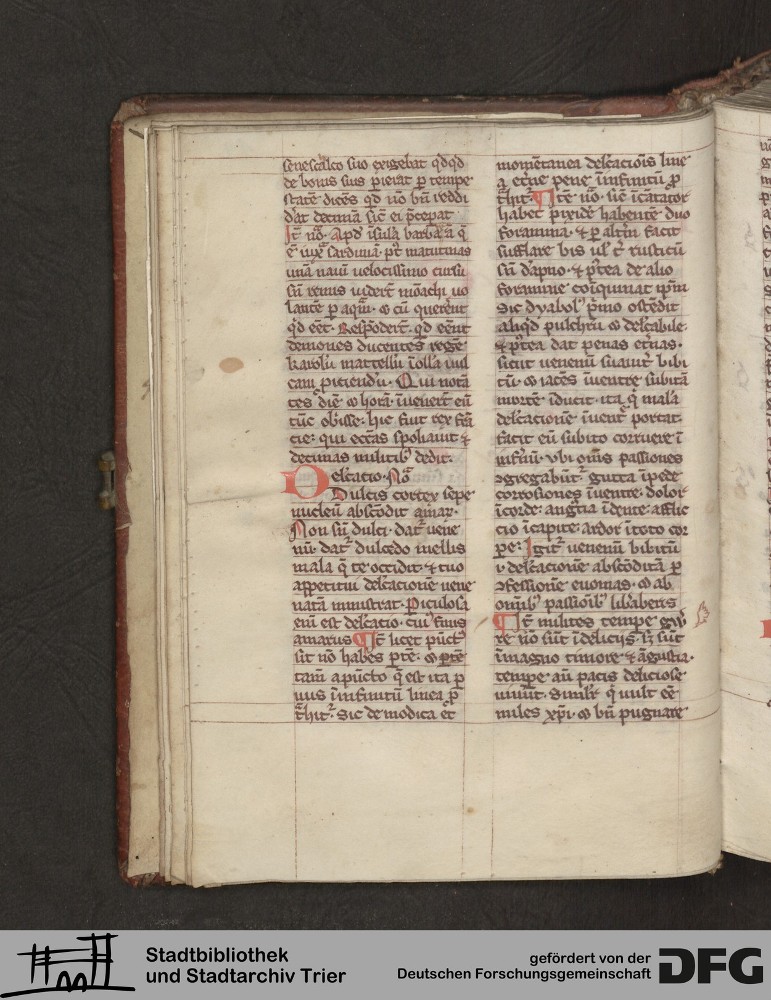 senescalco suo exigebat qdqd
de bonis suis pierat p tempe
statē dicēs qd nō bn̄ reddi
dat decimā sic̄ ei p̄cepat
It̄ nō. Apd̕ īsulā barbarā q̄
ē iuxª Sardiniā. pt̕ matutinas
unā nauū uelocissimo cursu
sn̄ remis uiderт̄ mōachi uo
lantē p aqm̄. ⁊ cū querent̕
qd̕ eēt. Respōdert̄. qd̕ eēnt
demones ducentes regē
karolū martellū ī olla uul
cani puiendū. Qui notā
tes diē ⁊ horā. īuenert̄ eū
tūc obisse. hic fuit rex frā
cie: qui ecc̄as spoliauit ⁊
decimas militib̕ dedit.
Delc̄atio. Nō
Dulcis cortex sepe
nucleū abscōdit amar̕.
Non sn̄ dulci. dat̕ uene
nū. dat̕ dulcedo mellis
mala q̄ te occidit. ⁊ tuo
appetitui delc̄acionē uene
natā ministrat. Piculosa
enī est delc̄atio. cui̕ finis
amarus ¶ It̄ licet pūct̕
sit nō habēs ptē. ⁊ ptē
tam̄ a pūcto q̄ est ita p
uus ī infinitū linea p
t̄hit̕. Sic de modica et̄
momētanea delc̄acioīs line
a et̄ne pene ī infinitū p
t̄hit̕. ¶ Ite nō. sic̄ īcātator
habet pixidē habentē duo
foramina. ⁊ p altm̄ facit
sufflare bis ul̕ t̕ rusticū
sn̄ dāpno. ⁊ p̄tea de alio
foramine coīquinat ipm̄
Sic dyabol̕ p̄mo ostēdit
aliqd̕ pulchrū ⁊ delc̄abile.
⁊ p̄tea dat penas et̄nas.
sicut uenenū suauit̕ bibi
tū. ⁊ iacēs ī uentre subitā
mortē īducit. ita q̄ mala
delc̄acionē ī uent̕ portat.
facit eū subito corruere ī
īfnū. ubi om̄s passiones
ꝯgregabūt̕. gutta ī pede
corrosiones ī uentre. dolor
ī corde. angīa ī dente. afflic
cio ī capite. ardor ī toto cor
pe. Igit̕ uenenū bibitū
ı delc̄acionē abscōditā p
ꝯfessionē euomas. ⁊ ab
om̄ib̕ passioīb̕ lib̕aberis
¶ It̄ milites tempe gw̕
re nō sūt ī delicijs. sꝫ sūt
ī magno timore ⁊ āgustia.
tempe au̅ pacis deliciose
uiuūt. Simil̕r q̕ uult eē
miles xp̄i. ⁊ bn̄ pugnare
Stadtbibliothek
und Stadtarchiv Trier
gefördert von der
Deutschen Forschungsgemeinschaft
DFG